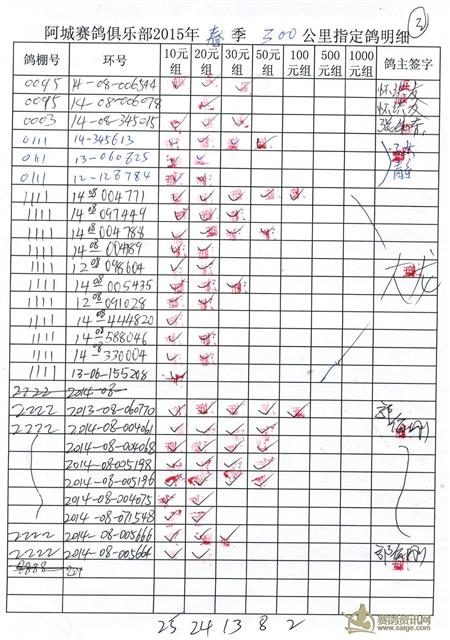 ②
阿城赛鸽俱乐部2015年 春 季 300 公里指定鸽明细
鸽棚号 环号 10元组 20元组 30元组 50元组 100元组 500元组 1000元组 鸽主签字
0095 14-08-006544 ✓ ✓ ✓
0095 14-08-006078 ✓
0003 14-08-345015 ✓ ✓ ✓
0111 14-345613 ✓ ✓ ✓ ✓
0111 13-060825 ✓ ✓
0111 12-128784 ✓ ✓
1111 14-08 004771 ✓ ✓ ✓ ✓ ✓
1111 14-08 097449 ✓ ✓ ✓
1111 14-08 004788 ✓ ✓ ✓ ✓
1111 14-08 004789 ✓ ✓
1111 12-08 098604 ✓ ✓
1111 14-08 005435 ✓ ✓ ✓
1111 12-08 091028 ✓ ✓
1111 14-08-444820 ✓
1111 14-08-588046 ✓ ✓
1111 14-08-330004 ✓ ✓
1111 13-06-155208 ✓
2222 2014-08-
2222 2013-08-060770 ✓ ✓ ✓ ✓ ✓
2222 2014-08-004061 ✓ ✓ ✓ ✓
2014-08-004068 ✓ ✓ ✓ ✓
2014-08-005198 ✓ ✓ ✓ ✓
2014-08-005196 ✓ ✓ ✓ ✓
2014-08-004075 ✓ ✓
2014-08-071548 ✓ ✓
2222 2014-08-005666 ✓ ✓ ✓
2222 2014-08-005664 ✓ ✓
8888 201
25 24 13 8 2
赛鸽资讯网
www.saige.com